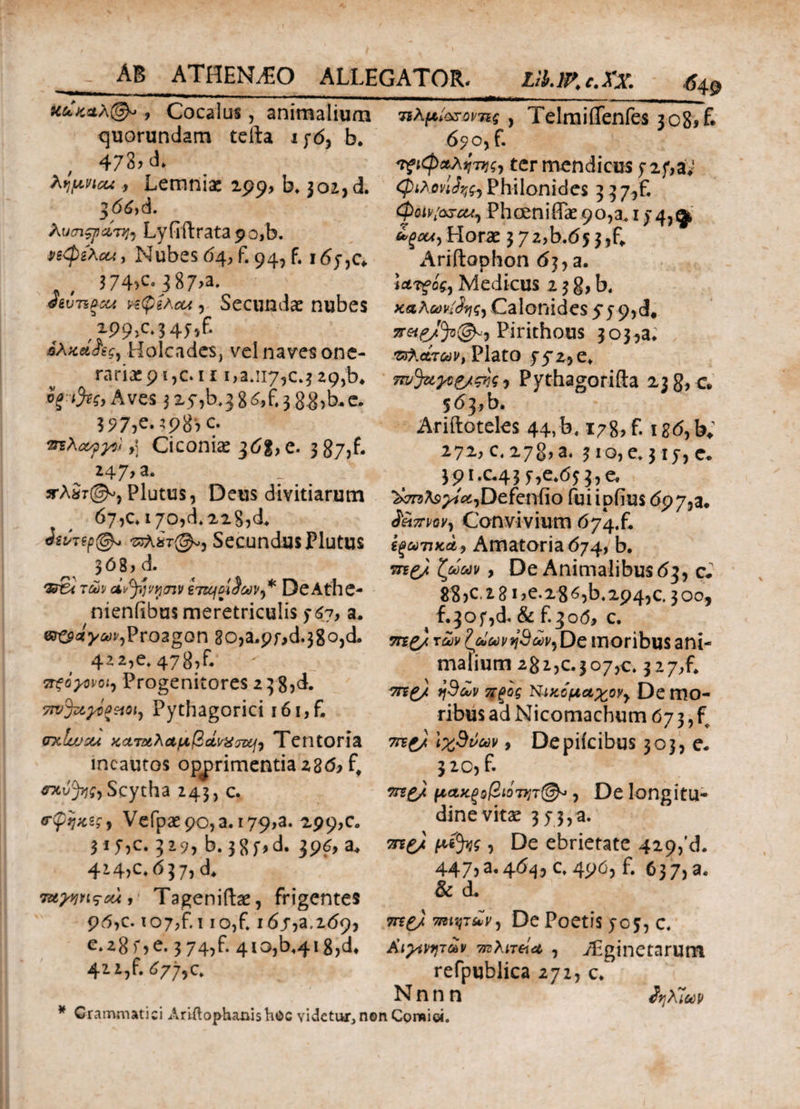 AB ATHENÆO ALLEGATOR. Lib.IV. c.XX. 649
κώκαλ(Θ), Cocalus, animalium
quorundam testa 156, b.
478, d.
λήμνιαι, Lemniæ 299, b. 302, d.
366, d.
λυσιςράτη, Lysistrata 90, b.
νεφέλαι, Nubes 64, f. 94, f. 165, c.
374, c. 387, a.
δευτέραι νεφέλαι, Secundæ nubes
299, c. 345, f.
ὁλκάδες, Holcades, vel naves one-
rariæ 91, c. 111, a. 117, c. 329, b.
ὄρνιθες, Aves 325, b. 386, f. 388, b. e.
397, e. 398, c.
πελαργοὶ, Ciconiæ 368, e. 387, f.
247, a.
πλȣτ(Θ), Plutus, Deus divitiarum
67, c. 170, d. 228, d.
δεύτερ(Θ) πλȣτ(Θ), Secundus Plutus
368, d.
περὶ τῶν ἀθήνησιν ἑταιρίδων,* De Athe-
niensibus meretriculis 567, a.
προάγων, Proagon 80, a. 95, d. 380, d.
422, e. 478, f.
πρόγονοι, Progenitores 238, d.
πυθαγόρειοι, Pythagorici 161, f.
σκluυαὶ καταλαμβάνȣσαι, Tentoria
incautos opprimentia 286, f,
σκύθης, Scytha 243, c.
σφῆκες, Vespæ 90, a. 179, a. 299, c.
315, c. 329, b. 385, d. 396, a.
424, c. 637, d.
ταγηνιςαὶ, Tagenistæ, frigentes
96, c. 107, f. 110, f. 165, a. 269,
e. 285, e. 374, f. 410, b. 418, d.
422, f. 677, c.
* Grammatici Aristophanis hoc videtur, non Comici.
τελμιοσοντες, Telmissenses 308, f.
690, f.
τριφαλήτης, ter mendicus 525, a.
φιλονίδης, Philonides 337, f.
φοινίοσαι, Phœnissæ 90, a. 154,
ὧραι, Horæ 372, b. 653, f.
Aristophon 63, a.
ἰατρός, Medicus 238, b.
καλωνίδης, Calonides 559, d.
πειρίθ(Θ), Pirithous 303, a.
πλάτων, Plato 552, e.
πυθαγοριςὴς, Pythagorista 238, c.
563, b.
Aristoteles 44, b. 178, f. 186, b.
272, c. 278, a. 310, e. 315, e.
391. c. 435, e. 653, e.
ἀπολογία, Defensio sui ipsius 697, a.
δεῖπνον, Convivium 674. f.
ἐρωτικὰ, Amatoria 674, b.
περὶ ζώων, De Animalibus 63, c.
88, c. 281, e. 286, b. 294, c. 300,
f. 305, d. & f. 306, c.
περὶ τῶν ζώων ἠθῶν, De moribus ani-
malium 282, c. 307, c. 327, f.
περὶ ἠθῶν πρὸς Νικόμαχον, De mo-
ribus ad Nicomachum 673, f.
περὶ ἰχθύων, De piscibus 303, e.
320, f.
περὶ μακροβιότητ(Θ), De longitu-
dine vitæ 353, a.
περὶ μέθης, De ebrietate 429, d.
447, a. 464, c. 496, f. 637, a.
& d.
περὶ ποιητῶν, De Poetis 505, c.
Αἰγινητῶν πολιτεία, Æginetarum
respublica 272, c.
Nnnn δηλίων